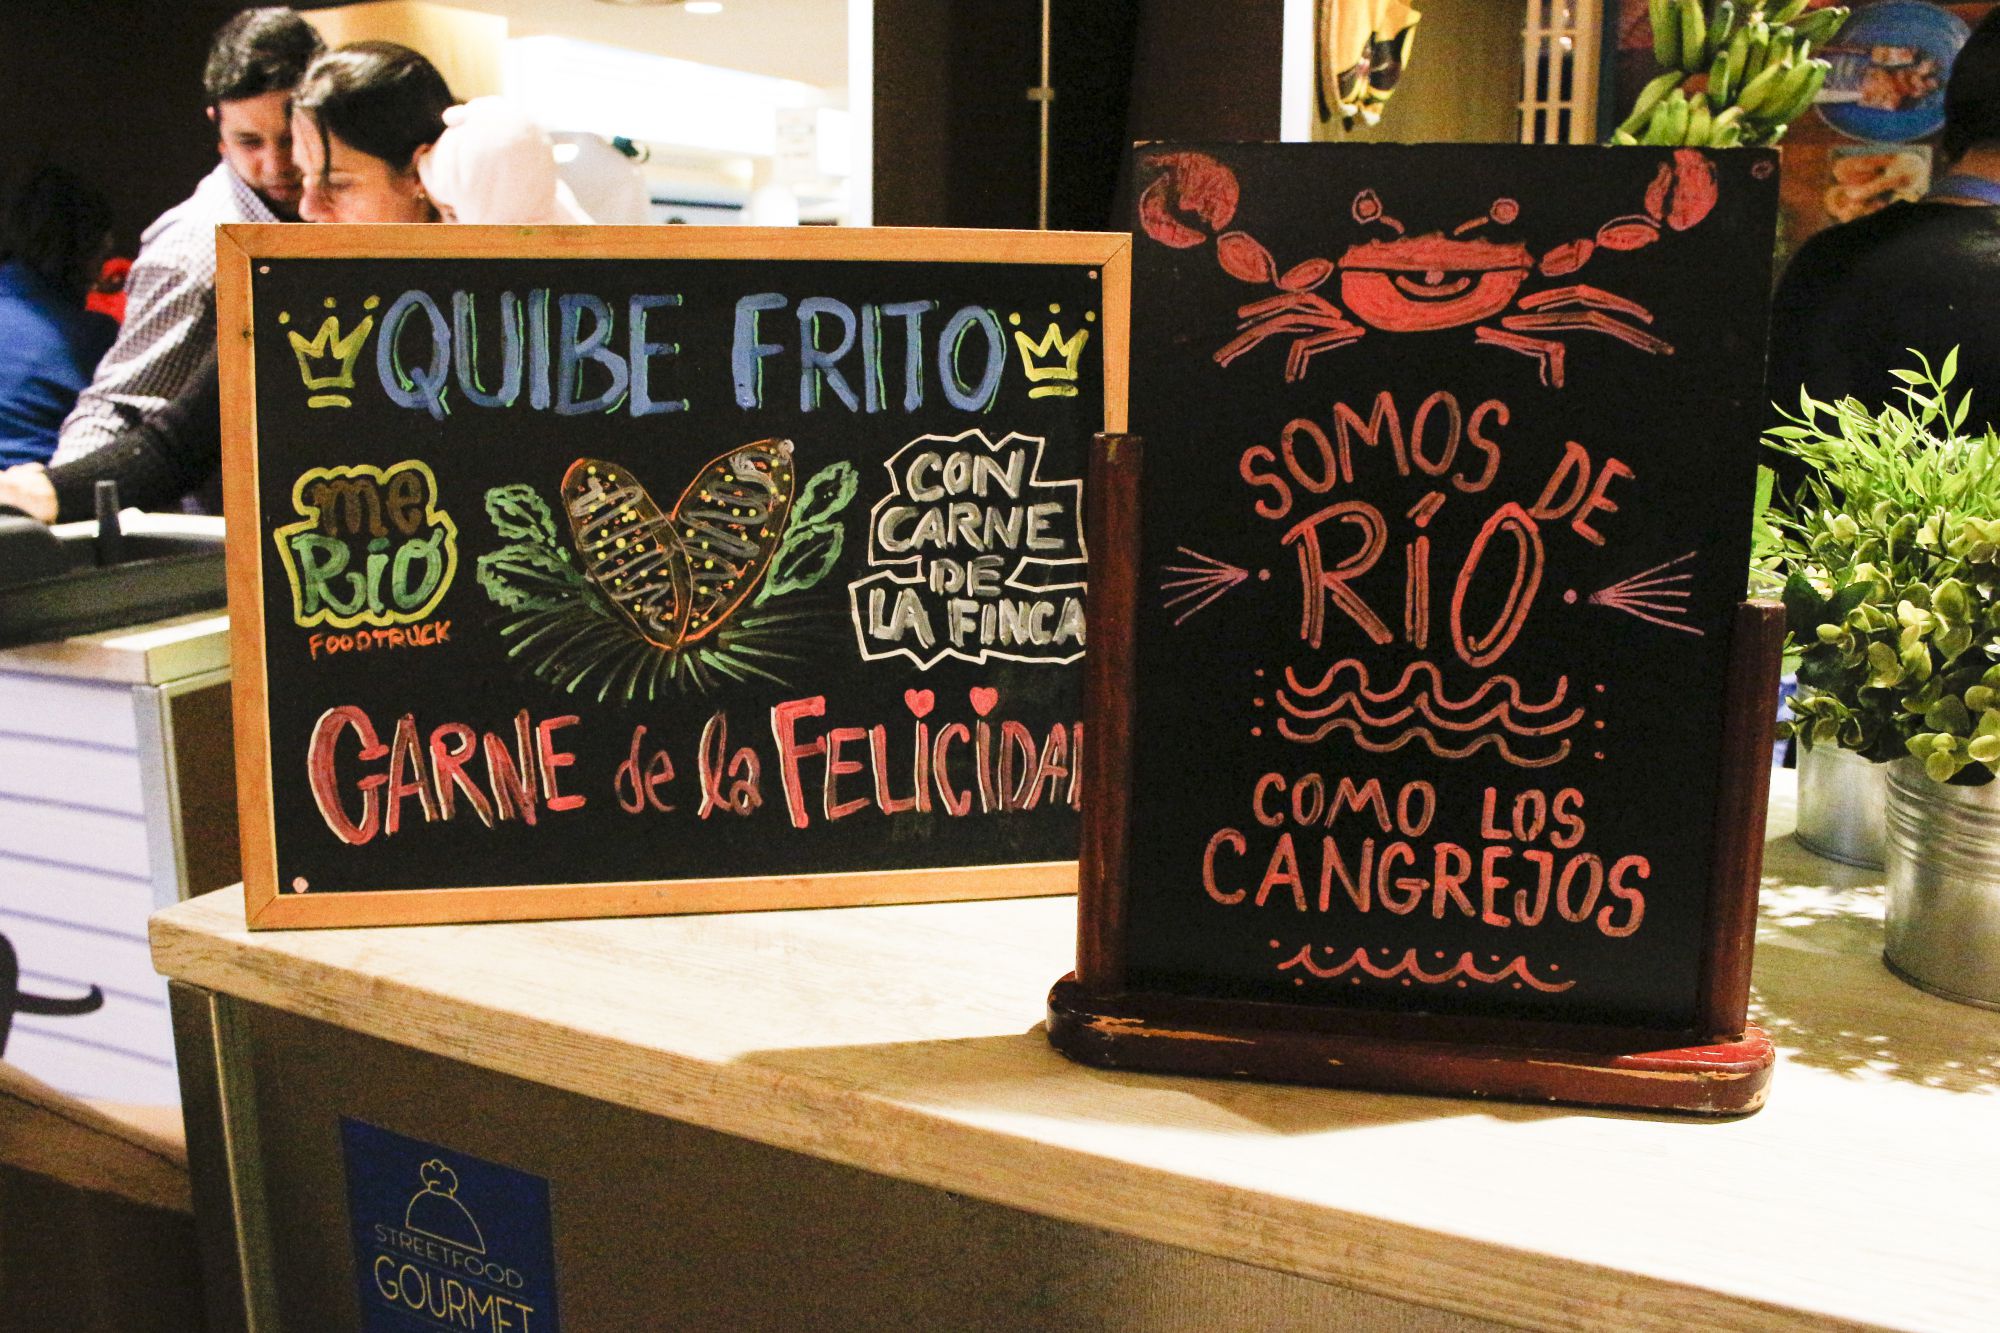 QUIBE FRITO
me
RiO
FOODTRUCK
CON
CARNE
DE
LA FINCA
CARNE de la FELICIDAD
SOMOS DE
RÍO
COMO LOS
CANGREJOS
STREETFOOD
GOURMET